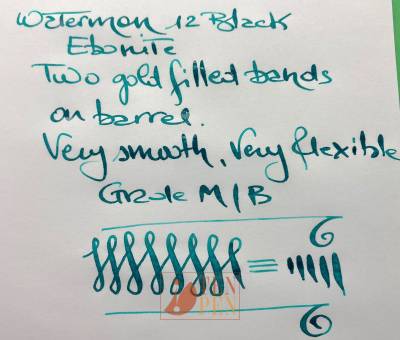 Waterman 12 Black
Ebonite
Two gold filled bands
on barrel.
Very smooth, Very flexible
Grade M/B
PEN
PEN